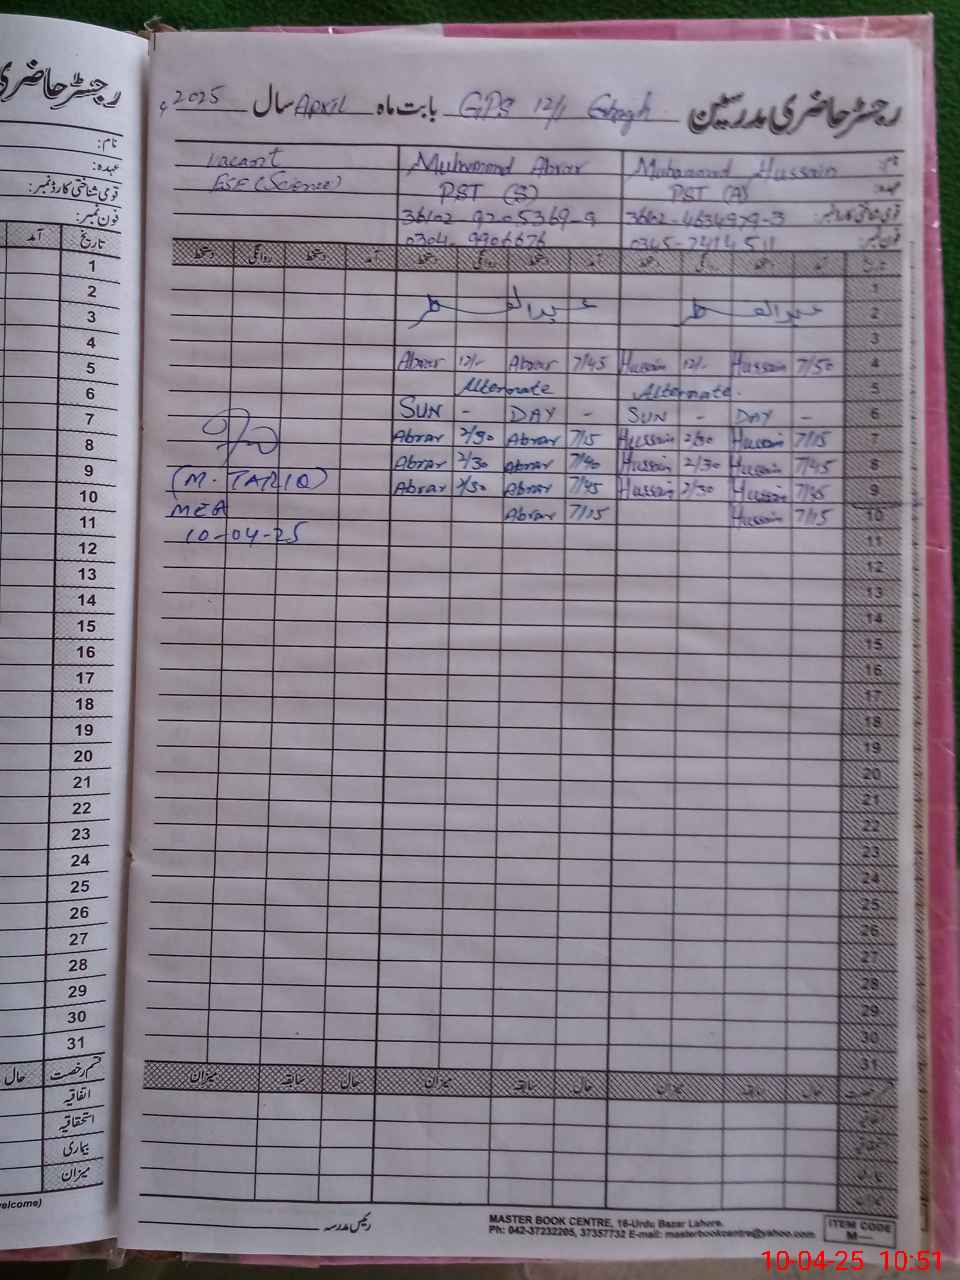 رجسٹر حاضری مدرسین GPS 12/1 Ghagh بابت ماہ April سال 2025ء
نام: Muhammad Hussain Muhammad Abrar Vacant
عہدہ: PST (A) PST (S) ESE (Science)
قومی شناختی کارڈ نمبر: 36102-4634979-3 36102-9705369-9
فون نمبر: 0345-7414511 0304-9906676
تاریخ آمد دستخط روانگی دستخط آمد دستخط روانگی دستخط آمد دستخط روانگی دستخط
1
2 عیدالفطر عیدالفطر
3
4 7/50 Hussain 12/- Hussain 7/45 Abrar 12/- Abrar
5 Alternate. Alternate
6 SUN - DAY - SUN - DAY -
7 7/15 Hussain 2/30 Hussain 7/15 Abrar 2/30 Abrar
8 7/45 Hussain 2/30 Hussain 7/40 Abrar 2/30 Abrar
9 7/45 Hussain 2/30 Hussain 7/45 Abrar 2/30 Abrar
10 7/15 Hussain 7/15 Abrar
(M. TARIQ)
MEA
10-04-25
11
12
13
14
15
16
17
18
19
20
21
22
23
24
25
26
27
28
29
30
31
قسم رخصت حال سابقہ میزان حال سابقہ میزان حال سابقہ میزان
اتفاقیہ
استحقاقیہ
بیماری
میزان
رئیس مدرسہ
MASTER BOOK CENTRE, 16-Urdu Bazar Lahore.
Ph: 042-37232205, 37357732 E-mail: masterbookcentre@yahoo.com
ITEM CODE
M—
رجسٹر حاضری
نام:
عہدہ:
قومی شناختی کارڈ نمبر:
فون نمبر:
تاریخ آمد
1
2
3
4
5
6
7
8
9
10
11
12
13
14
15
16
17
18
19
20
21
22
23
24
25
26
27
28
29
30
31
قسم رخصت حال
اتفاقیہ
استحقاقیہ
بیماری
میزان
welcome)
10-04-25 10:51